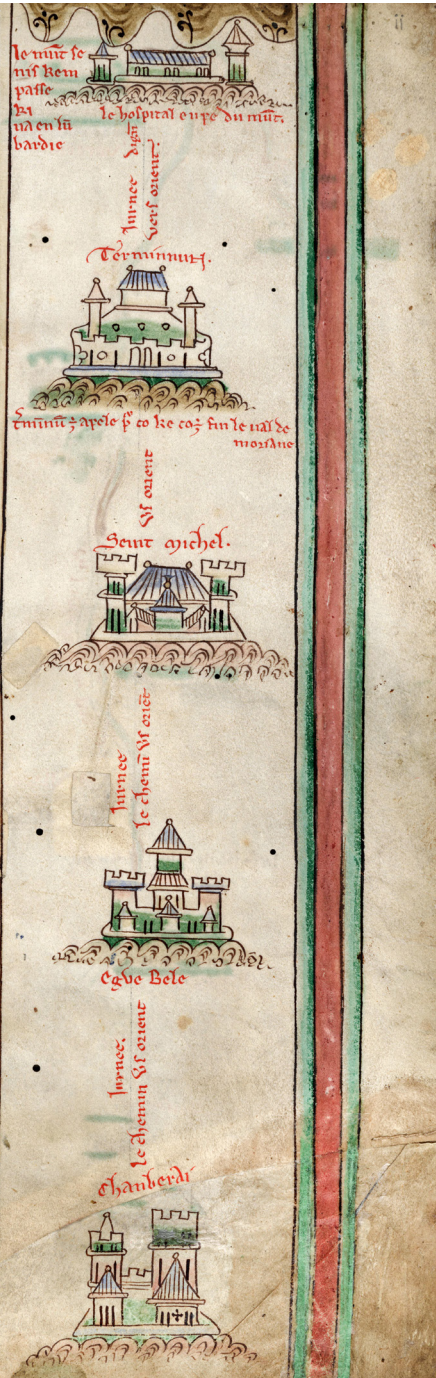 le munt se
nis kem
passe
ki
va en lū
bardie
le hospital en pe du mūt.
Jurnee
vers orient.
Terminnun.
apele
ke
fin le val de
moriane
Vs orient
Seint Michel.
Jurnee
le chemī Vs oriēt
Egve Bele
Jurnee.
le chemin Vs orient
Chanberdi
ii